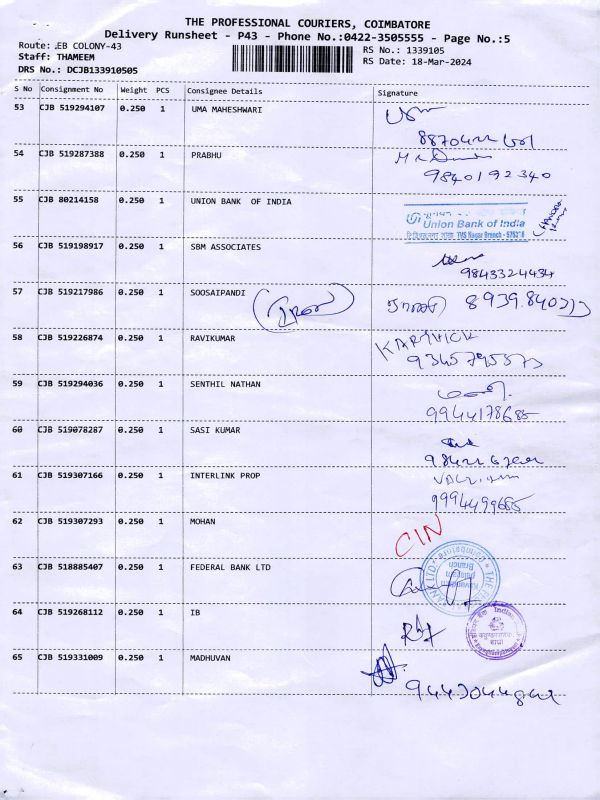 THE PROFESSIONAL COURIERS, COIMBATORE
Delivery Runsheet - P43 - Phone No.:0422-3505555 - Page No.:5
Route: EB COLONY-43
RS No.: 1339105
Staff: THAMEEM
RS Date: 18-Mar-2024
DRS No.: DCJB133910505
S No Consignment No Weight PCS Consignee Details Signature
53 CJB 519294107 0.250 1 UMA MAHESHWARI
54 CJB 519287388 0.250 1 PRABHU
9840192340
55 CJB 80214158 0.250 1 UNION BANK OF INDIA
Union Bank of India
TVS Nagar Branch
56 CJB 519198917 0.250 1 SBM ASSOCIATES
9843324434
57 CJB 519217986 0.250 1 SOOSAIPANDI
58 CJB 519226874 0.250 1 RAVIKUMAR
KARTHICK
59 CJB 519294036 0.250 1 SENTHIL NATHAN
9944178685
60 CJB 519078287 0.250 1 SASI KUMAR
61 CJB 519307166 0.250 1 INTERLINK PROP
9994499685
62 CJB 519307293 0.250 1 MOHAN
CIN
63 CJB 518885407 0.250 1 FEDERAL BANK LTD
64 CJB 519268112 0.250 1 IB
65 CJB 519331009 0.250 1 MADHUVAN